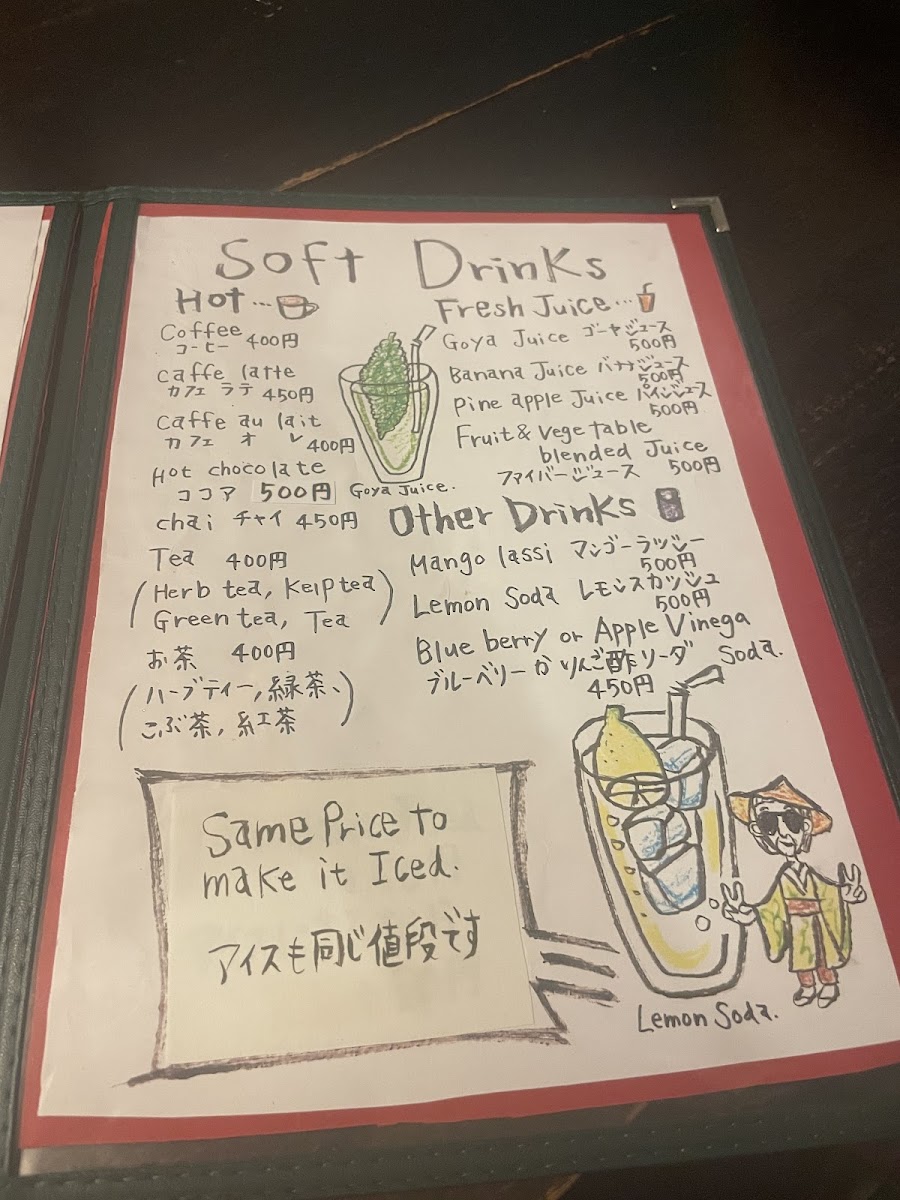 Soft Drinks
Hot...
Coffee
コーヒー 400円
caffe latte
カフェ ラテ 450円
caffe au lait
カフェ オ レ 400円
Hot chocolate
ココア 500円
chai チャイ 450円
Tea 400円
(Herb tea, Kelp tea
Green tea, Tea)
お茶 400円
(ハーブティー,緑茶、
こぶ茶,紅茶)
Fresh Juice...
Goya Juice ゴーヤジュース
500円
Banana Juice バナナジュース
500円
pine apple Juice パインジュース
500円
Fruit & vegetable
blended Juice
ファイバージュース 500円
Goya Juice.
Other Drinks
Mango lassi マンゴーラッシー
500円
Lemon Soda レモンスカッシュ
500円
Blue berry or Apple Vinega
Soda.
ブルーベリーかりんご酢ソーダ
450円
Same Price to
make it Iced.
アイスも同じ値段です
Lemon Soda.